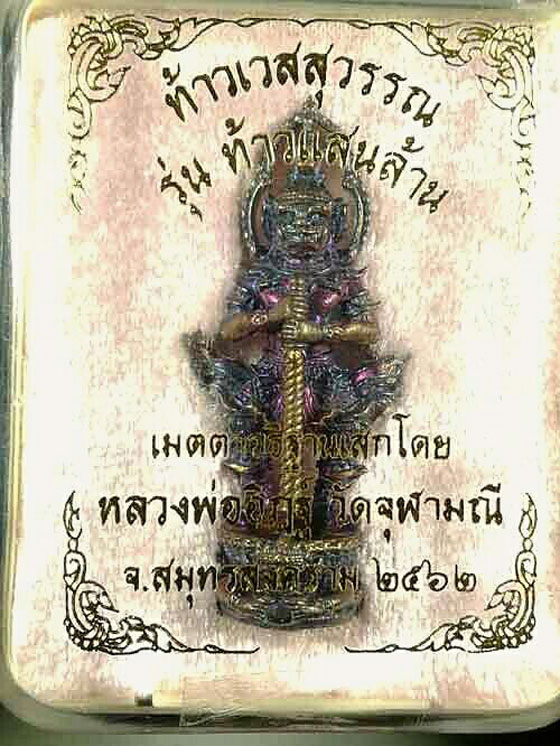 ท้าวเวสสุวรรณ
รุ่น ท้าวแสนล้าน
เมตตาอธิฐานเสกโดย
หลวงพ่ออิฏฐ์ วัดจุฬามณี
จ.สมุทรสงคราม ๒๕๖๒